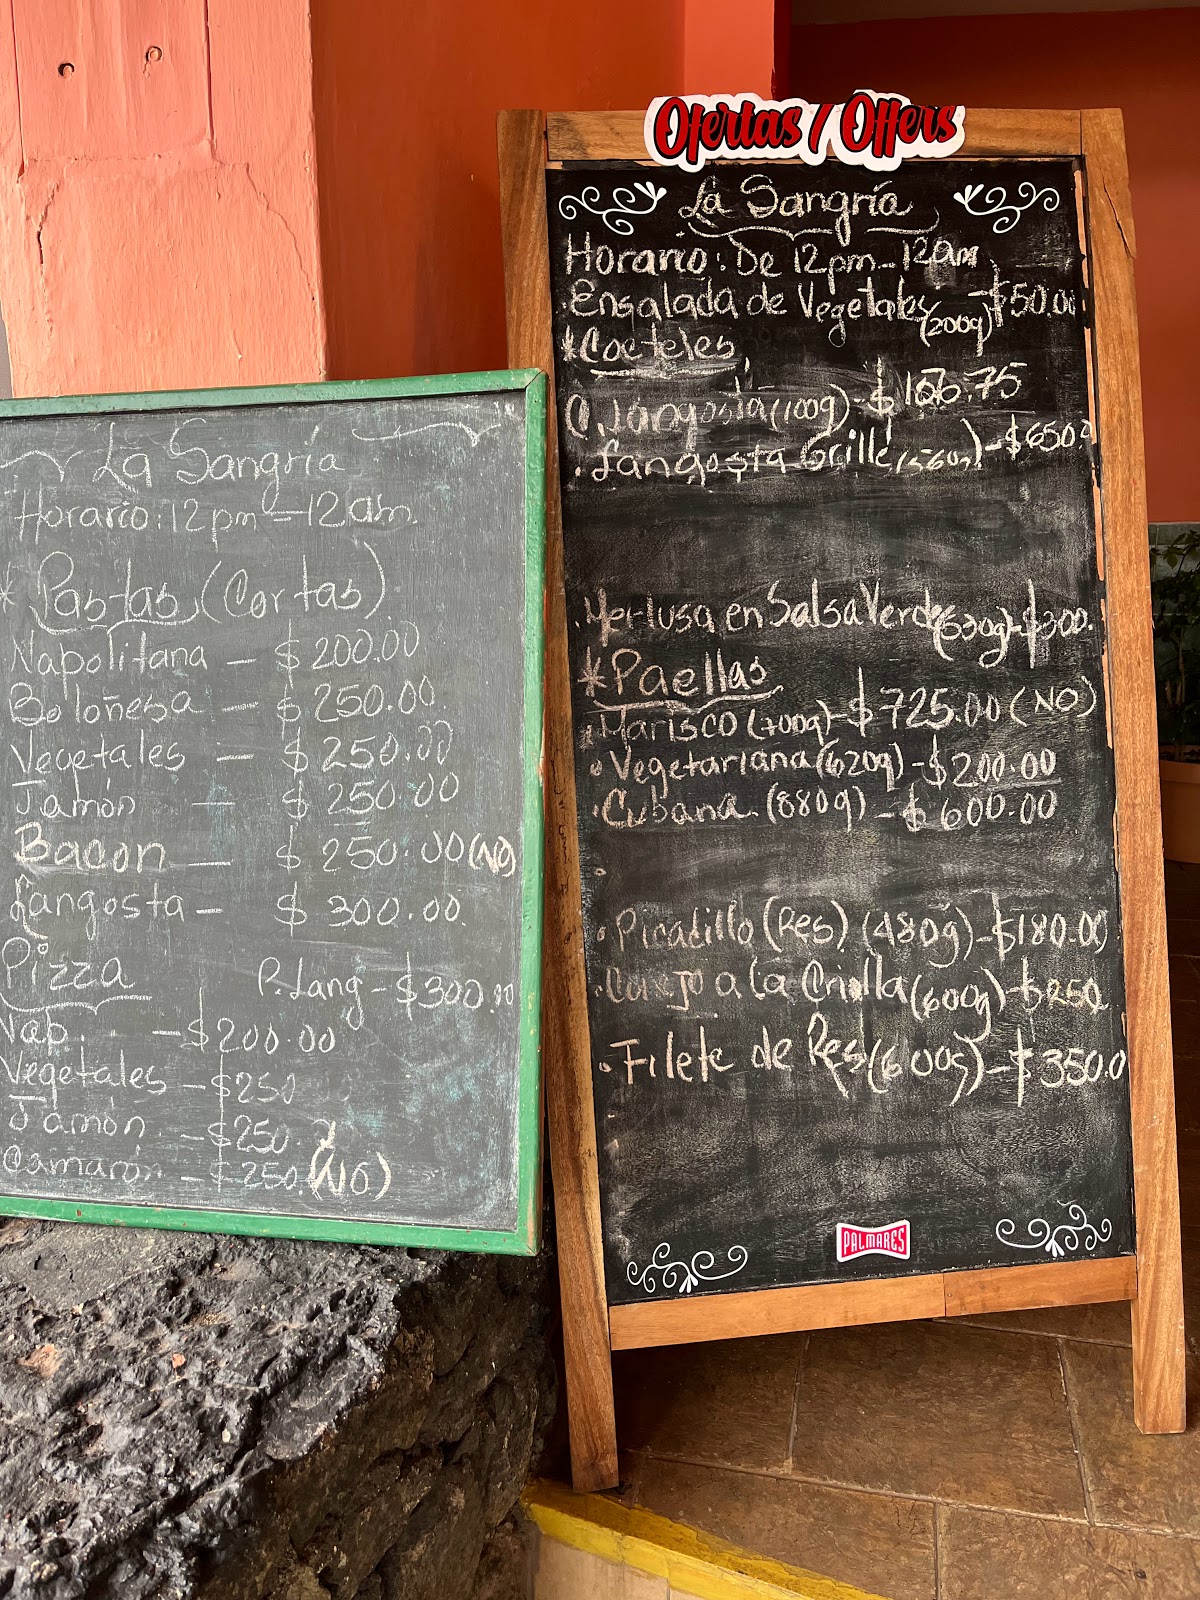 La Sangría
Horario: 12 pm - 12 am.
* Pastas (Cortas)
Napolitana - $ 200.00
Boloñesa - $ 250.00
Vegetales - $ 250.00
Jamón - $ 250.00
Bacon - $ 250.00 (NO)
Langosta - $ 300.00
Pizza
P. Lang - $300.00
Nap. - $200.00
Vegetales - $250
Jamón - $250.
Camarón - $250. (NO)
Ofertas / Offers
La Sangría
Horario: De 12pm - 12am
Ensalada de Vegetales (200g) - $50.00
* Cocteles
C. Langosta (100g) - $
. Langosta Grille - $650.
. Merluza en Salsa Verde (530g) - $300.
* Paellas
Marisco (700g) - $725.00 (NO)
. Vegetariana (620g) - $200.00
. Cubana. (880g) - $600.00
. Picadillo (Res) (480g) - $180.00
. Conejo a la Criolla (600g) - $250
. Filete de Res (600g) - $350.0
PALMARES